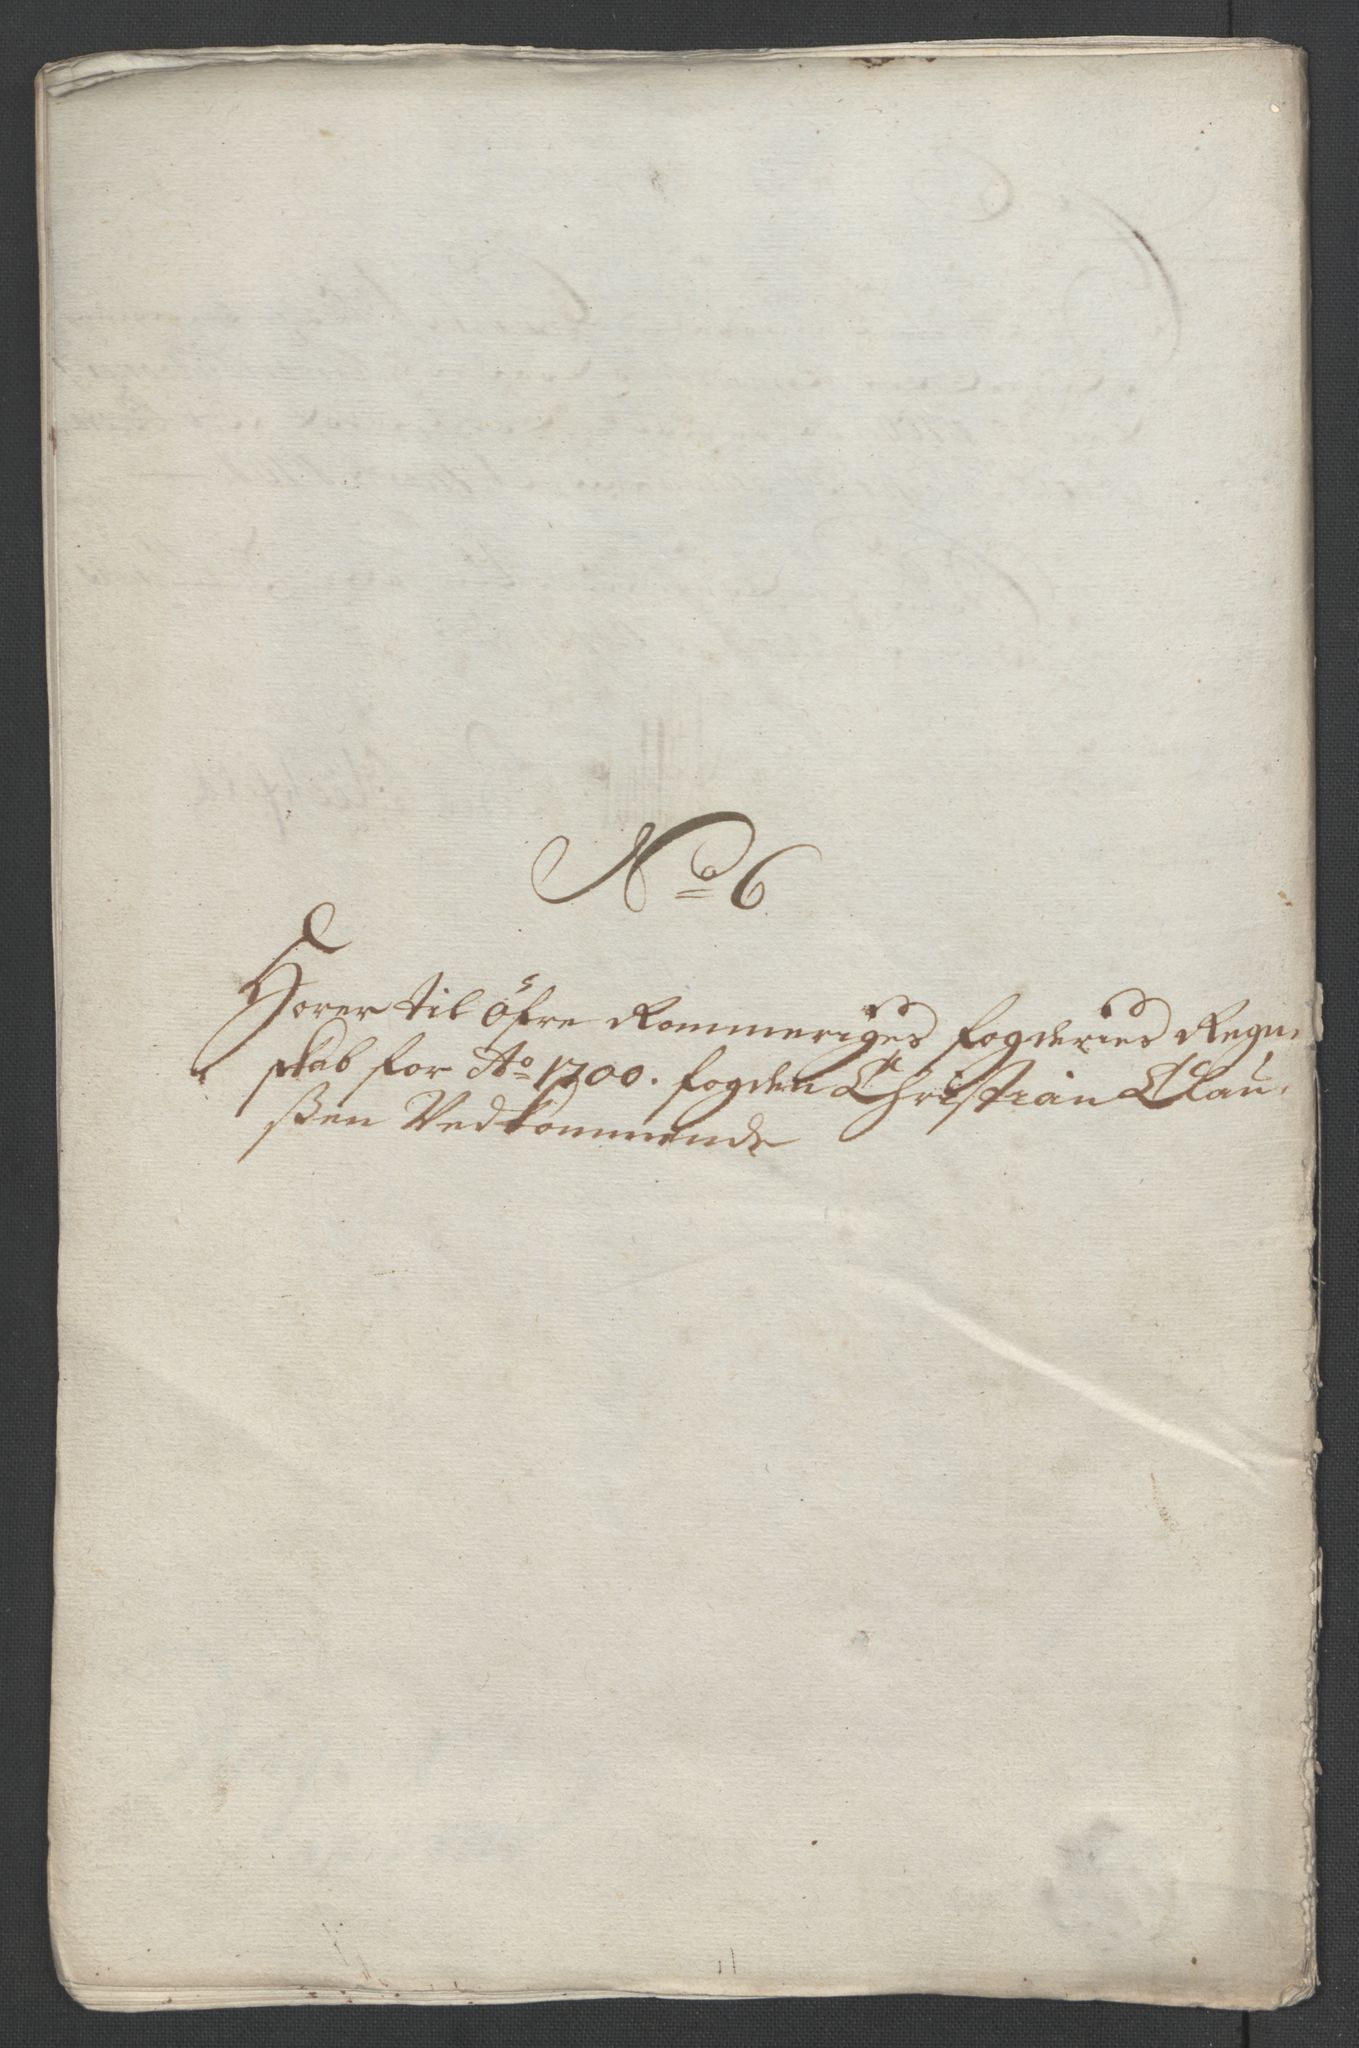 No 6
Hører til Øfre Rommeriges fogderies Regn-
skab for Ao 1700. fogden Christian Clau-
ßen Vedkommende